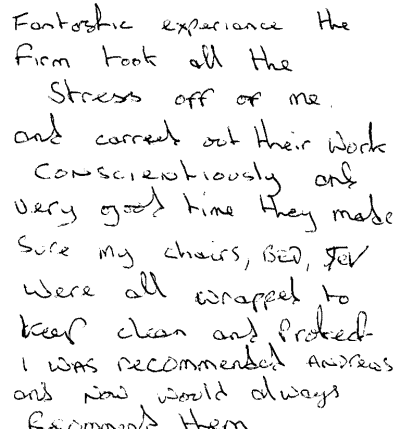 Fantastic experiance the
firm took all the
Stress off of me.
and carried out their work
conscientiously and
very good time they made
Sure my chairs, BED, TV
were all wrapped to
keep clean and Protect
I was recommended ANDREWS
and now would always
them